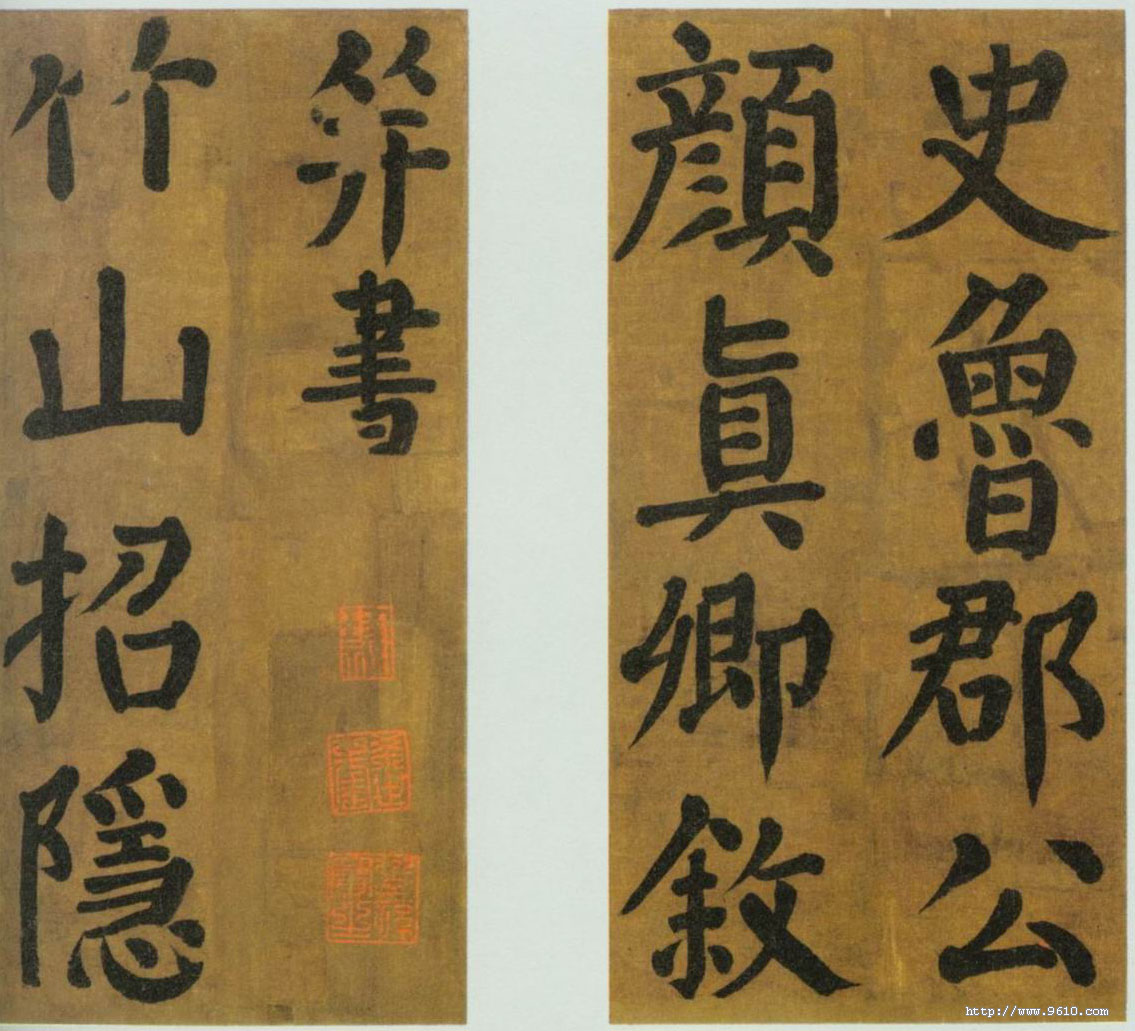 史魯郡公
顏眞卿敘
筭書
竹山招隱
http://www.9610.com